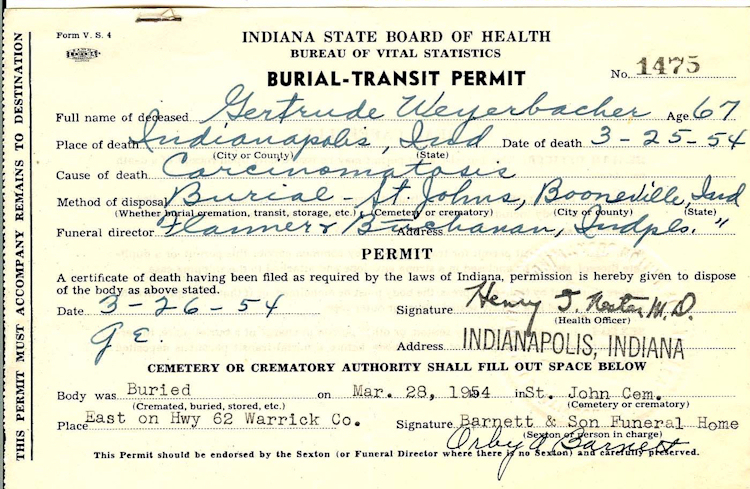 Form V. S. 4
INDIANA STATE BOARD OF HEALTH
BUREAU OF VITAL STATISTICS
BURIAL-TRANSIT PERMIT
No. 1475
Full name of deceased Gertrude Weyerbacher Age 67
Place of death Indianapolis, Ind Date of death 3-25-54
(City or County) (State)
Cause of death Carcinomatosis
Method of disposal Burial - St. Johns, Booneville, Ind
(Whether burial cremation, transit, storage, etc.) (Cemetery or crematory) (City or county) (State)
Funeral director Flanner & Buchanan, Address Indpls. "
PERMIT
A certificate of death having been filed as required by the laws of Indiana, permission is hereby given to dispose
of the body as above stated.
Date 3-26-54 Signature Henry J. Nester M.D.
(Health Officer)
G.E.
Address INDIANAPOLIS, INDIANA
CEMETERY OR CREMATORY AUTHORITY SHALL FILL OUT SPACE BELOW
Body was Buried on Mar. 28, 1954 in St. John Cem.
(Cremated, buried, stored, etc.) (Cemetery or crematory)
Place East on Hwy 62 Warrick Co. Signature Barnett & Son Funeral Home
(Sexton or person in charge)
Orby Barnett
This Permit should be endorsed by the Sexton (or Funeral Director where there is no Sexton) and carefully preserved.
THIS PERMIT MUST ACCOMPANY REMAINS TO DESTINATION